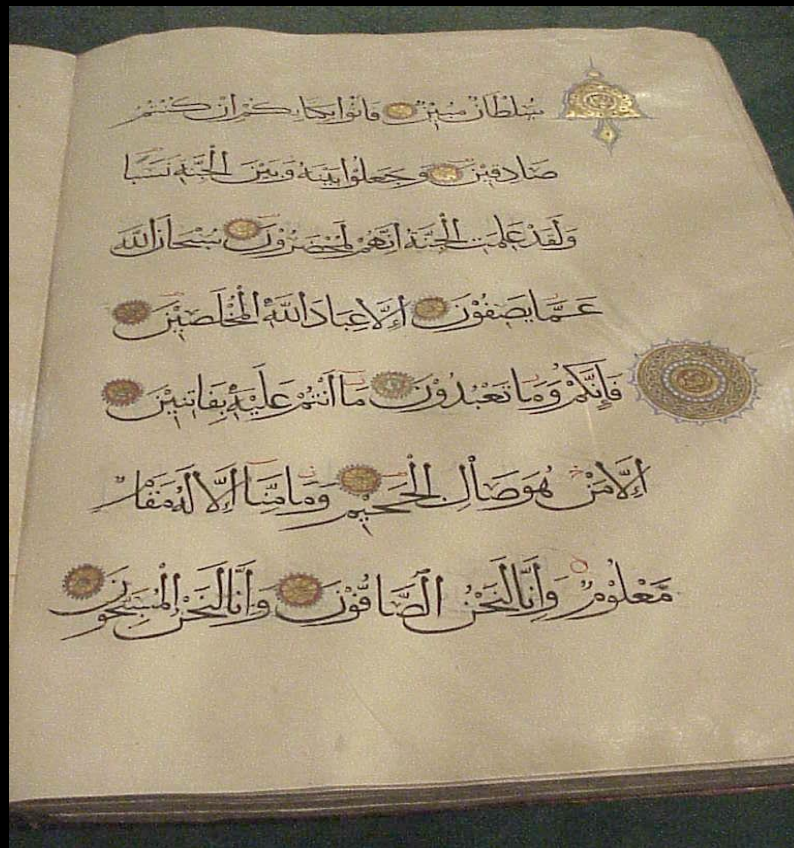 سُلْطَانٌ مُبِيْنٌ فَاتُوْا بِكِتَابِكُمْ اِنْ كُنْتُمْ
صَادِقِيْنَ وَجَعَلُوْا بَيْنَهُ وَبَيْنَ الْجِنَّةِ نَسَبًا
وَلَقَدْ عَلِمَتِ الْجِنَّةُ اِنَّهُمْ لَمُحْضَرُوْنَ سُبْحَانَ اللَّهِ
عَمَّا يَصِفُوْنَ اِلَّا عِبَادَ اللَّهِ الْمُخْلَصِيْنَ
فَاِنَّكُمْ وَمَا تَعْبُدُوْنَ مَا اَنْتُمْ عَلَيْهِ بِفَاتِنِيْنَ
اِلَّا مَنْ هُوَ صَالِ الْجَحِيْمِ وَمَا مِنَّا اِلَّا لَهُ مَقَامٌ
مَعْلُوْمٌ وَاِنَّا لَنَحْنُ الصَّافُّوْنَ وَاِنَّا لَنَحْنُ الْمُسَبِّحُوْنَ